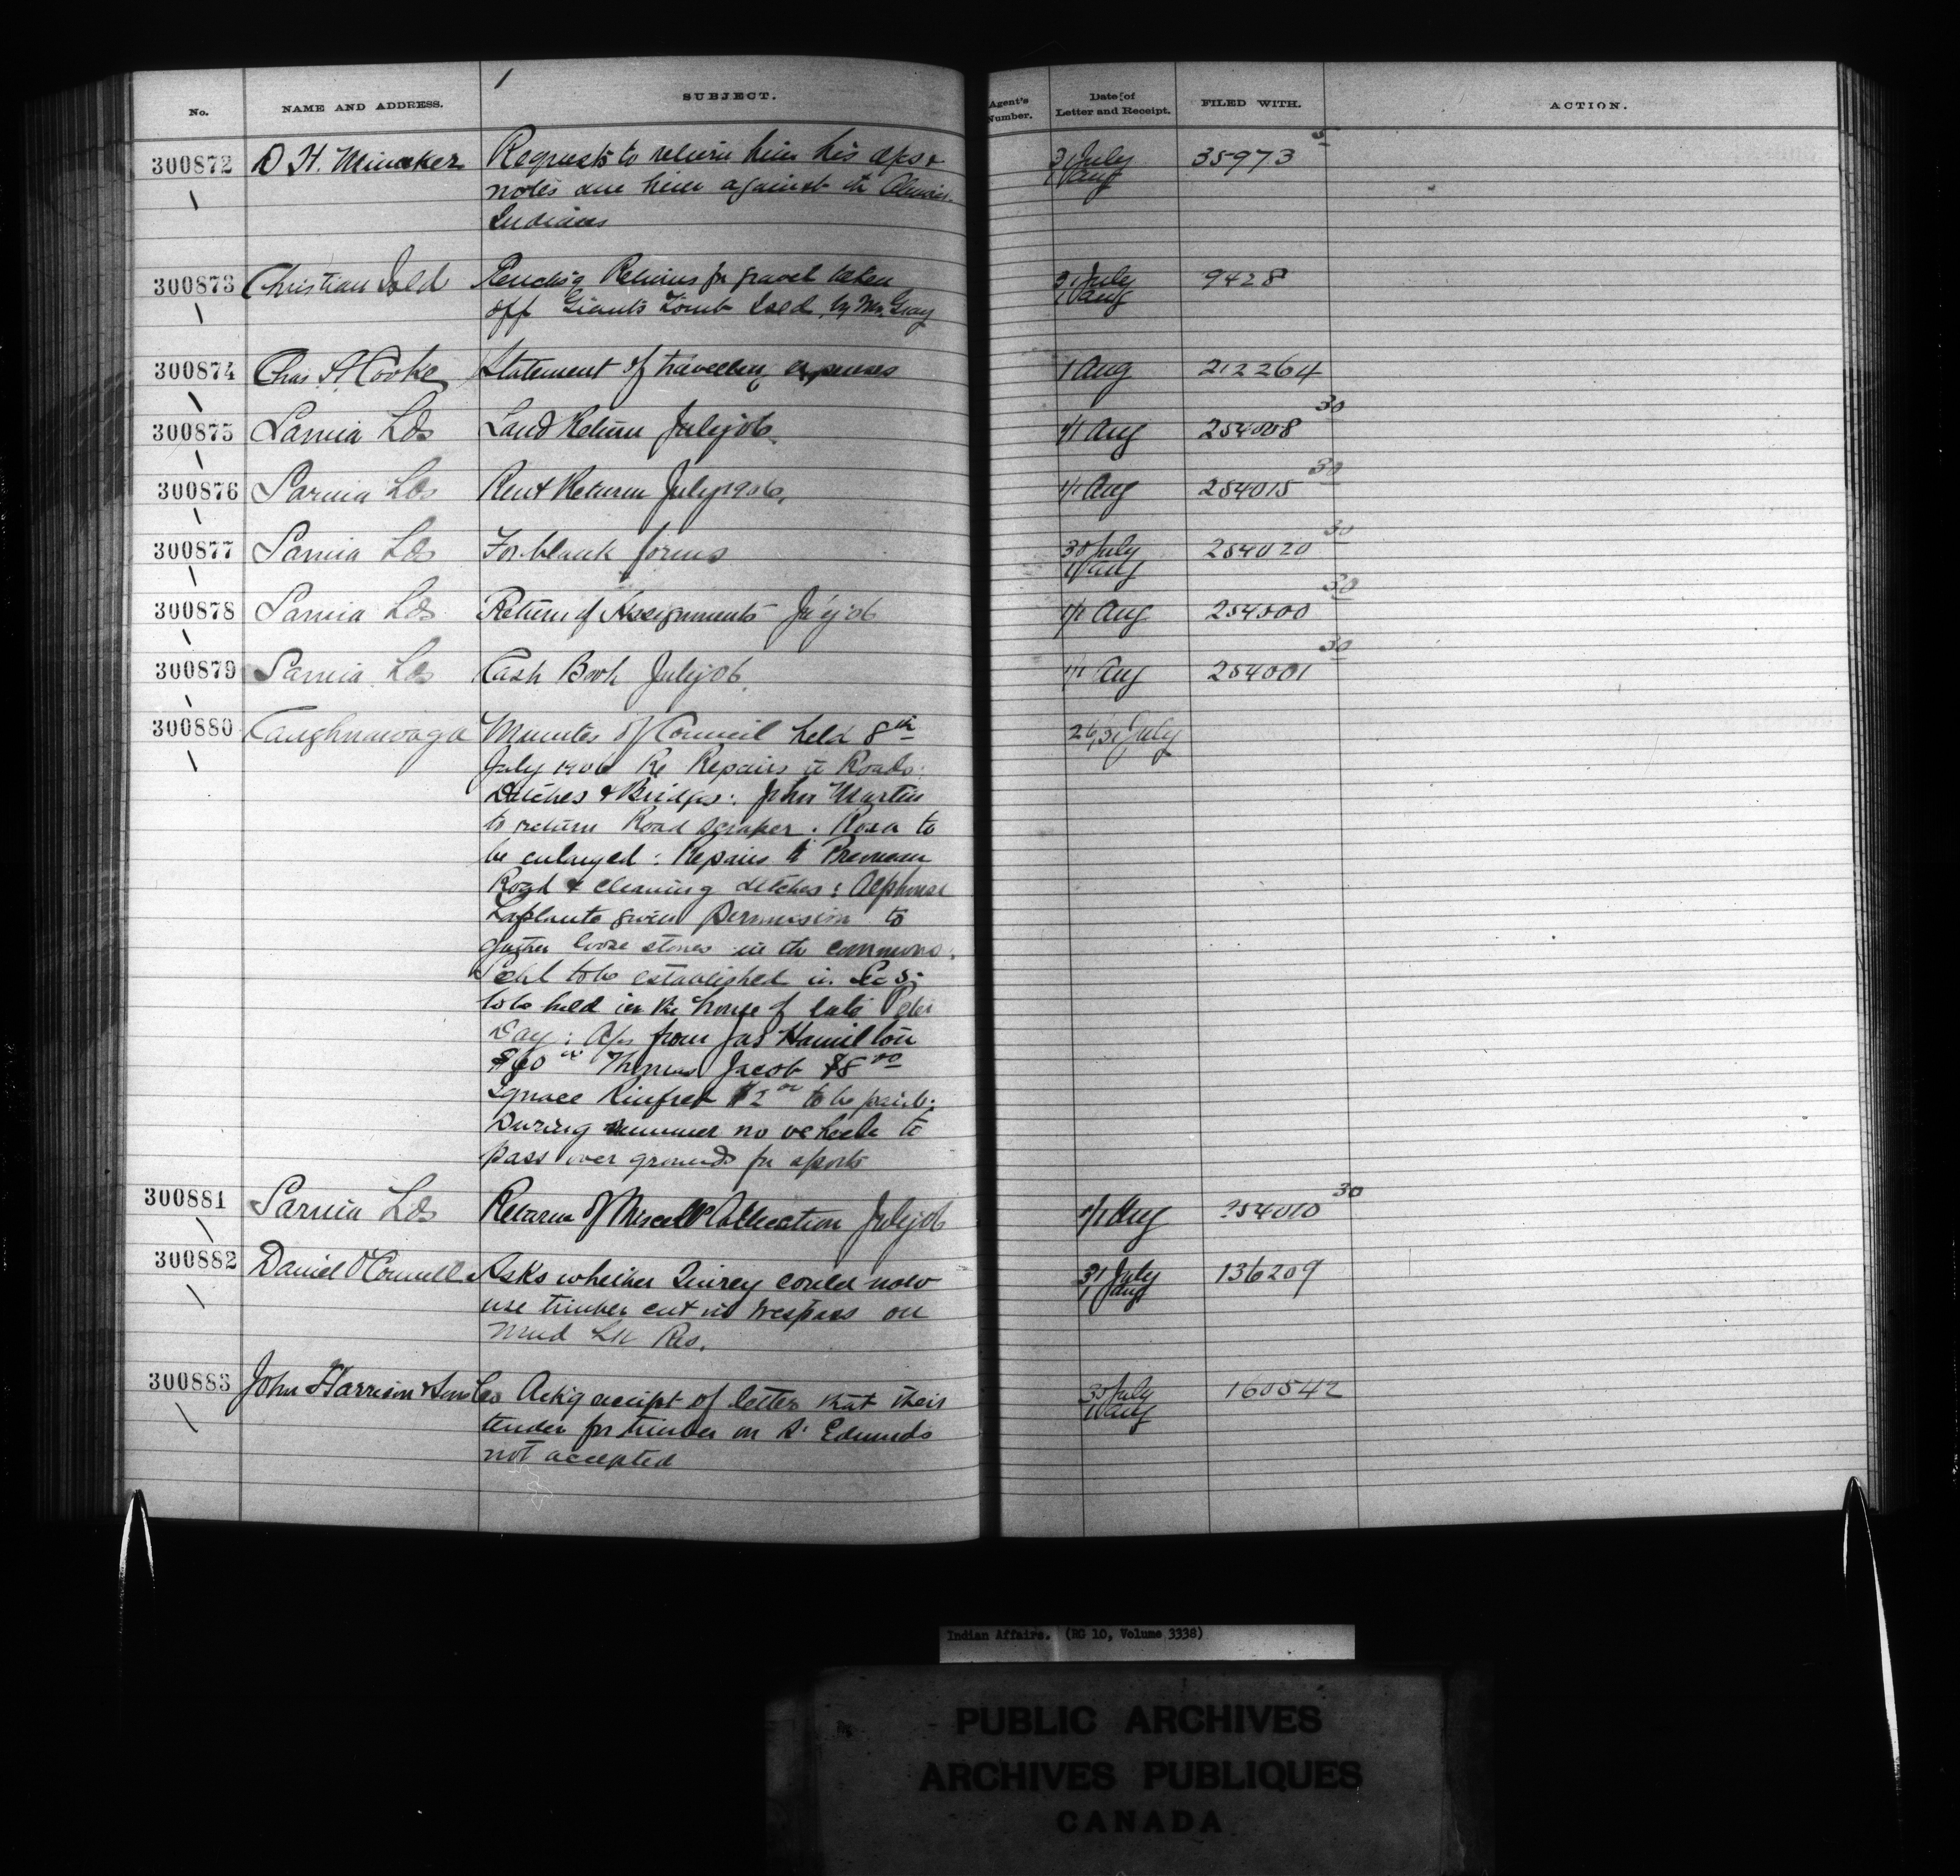 No. NAME AND ADDRESS. SUBJECT. Agent's Number. Date of Letter and Receipt. FILED WITH. ACTION.
300872 D H. Minaker Requests to return him his a/cs & 31 July 35973
notes due him against the Alnwick 1 Aug
Indians
300873 Christian Isld Sending Returns for gravel taken 31 July 9428
off Giants Tomb Isld by Mr. Gray 1 Aug
300874 Chas. A Cooke Statement of travelling expenses 1 Aug 212264
300875 Sarnia Lds Land Return July 06 1/1 Aug 254008 30
300876 Sarnia Lds Rent Return July 1906. 1/1 Aug 254015 30
300877 Sarnia Lds For blank forms 30 July 254020 30
1 Aug
300878 Sarnia Lds Return of Assignments July 06 1/1 Aug 254000 30
300879 Sarnia Lds Cash Book July 06 1/1 Aug 254001 30
300880 Caughnawaga Minutes of Council held 8th 26/31 July
July 1906 Re Repairs to Roads:
Ditches & Bridges: John Martin
to return Road scraper. Road to
be enlarged: Repairs to
Road & cleaning ditches: Alphonse
Laplante given permission to
gather loose stones in the commons.
Schl to be established in
to be held in the house of late Peter
Day: A/cs from Jas Hamilton
$60 00 Thomas Jacob $8 00
Ignace Rinfret $2 00 to be paid.
During summer no vehicle to
pass over grounds for sports
300881 Sarnia Lds Return of Miscell Collection July 06 1/1 Aug 254010 30
300882 Daniel O'Connell Asks whether Quirey could now 31 July 136209
use timber cut in trespass on 1 Aug
Mud Lk Res.
300883 John Harrison & Sons Co Ack'g receipt of letter that their 30 July 160542
tender for timber on St Edmunds 1 Aug
not accepted
Indian Affairs. (RG 10, Volume 3338)
PUBLIC ARCHIVES
ARCHIVES PUBLIQUES
CANADA